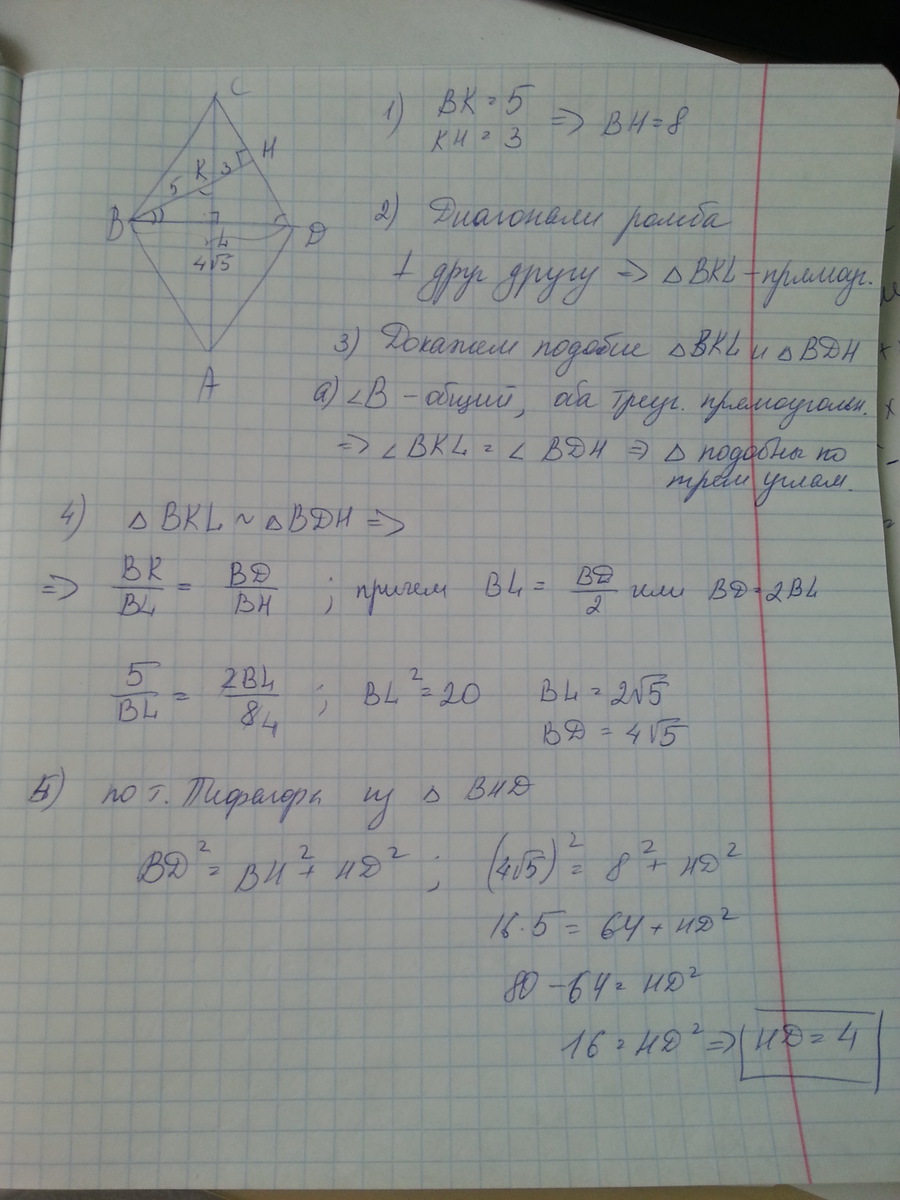 C
H
K
3
5
B
L
D
4√5
A
1) BK = 5
KH = 3
=> BH = 8
2) Диагонали ромба
⊥ друг другу => △BKL - прямоуг.
3) Докажем подобие △BKL и △BDH
а) ∠B - общий, оба треуг. прямоугольн.
=> ∠BKL = ∠BDH => △ подобны по
трем углам.
4) △BKL ~ △BDH =>
=> BK/BL = BD/BH ; причем BL = BD/2 или BD = 2BL
5/BL = 2BL/8 4 ; BL² = 20 BL = 2√5
BD = 4√5
5) по т. Пифагора из △ BHD
BD² = BH² + HD² ; (4√5)² = 8² + HD²
16·5 = 64 + HD²
80 - 64 = HD²
16 = HD² => HD = 4